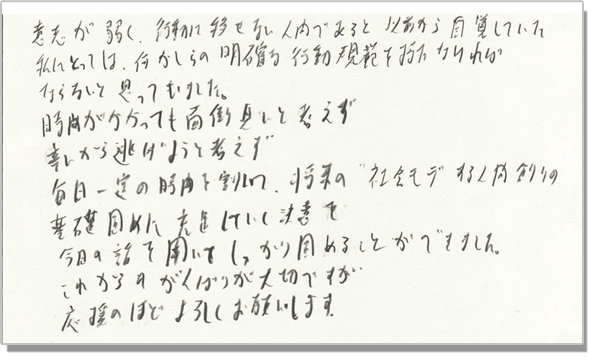 意志が弱く、行動に移せない人間であると以前から自覚していた
私にとっては、何かしらの明確な行動規範を持たなければ
ならないと思ってました。
時間がかかっても面倒臭いと考えず
辛いから逃げようと考えず
毎日一定の時間を割いて、将来の"社会モデする人材創りの
基礎固めに充足していく決意を
今日の話を聞いてしっかり固めることができました。
これからのがんばりが大切ですが
応援のほどよろしくお願いします